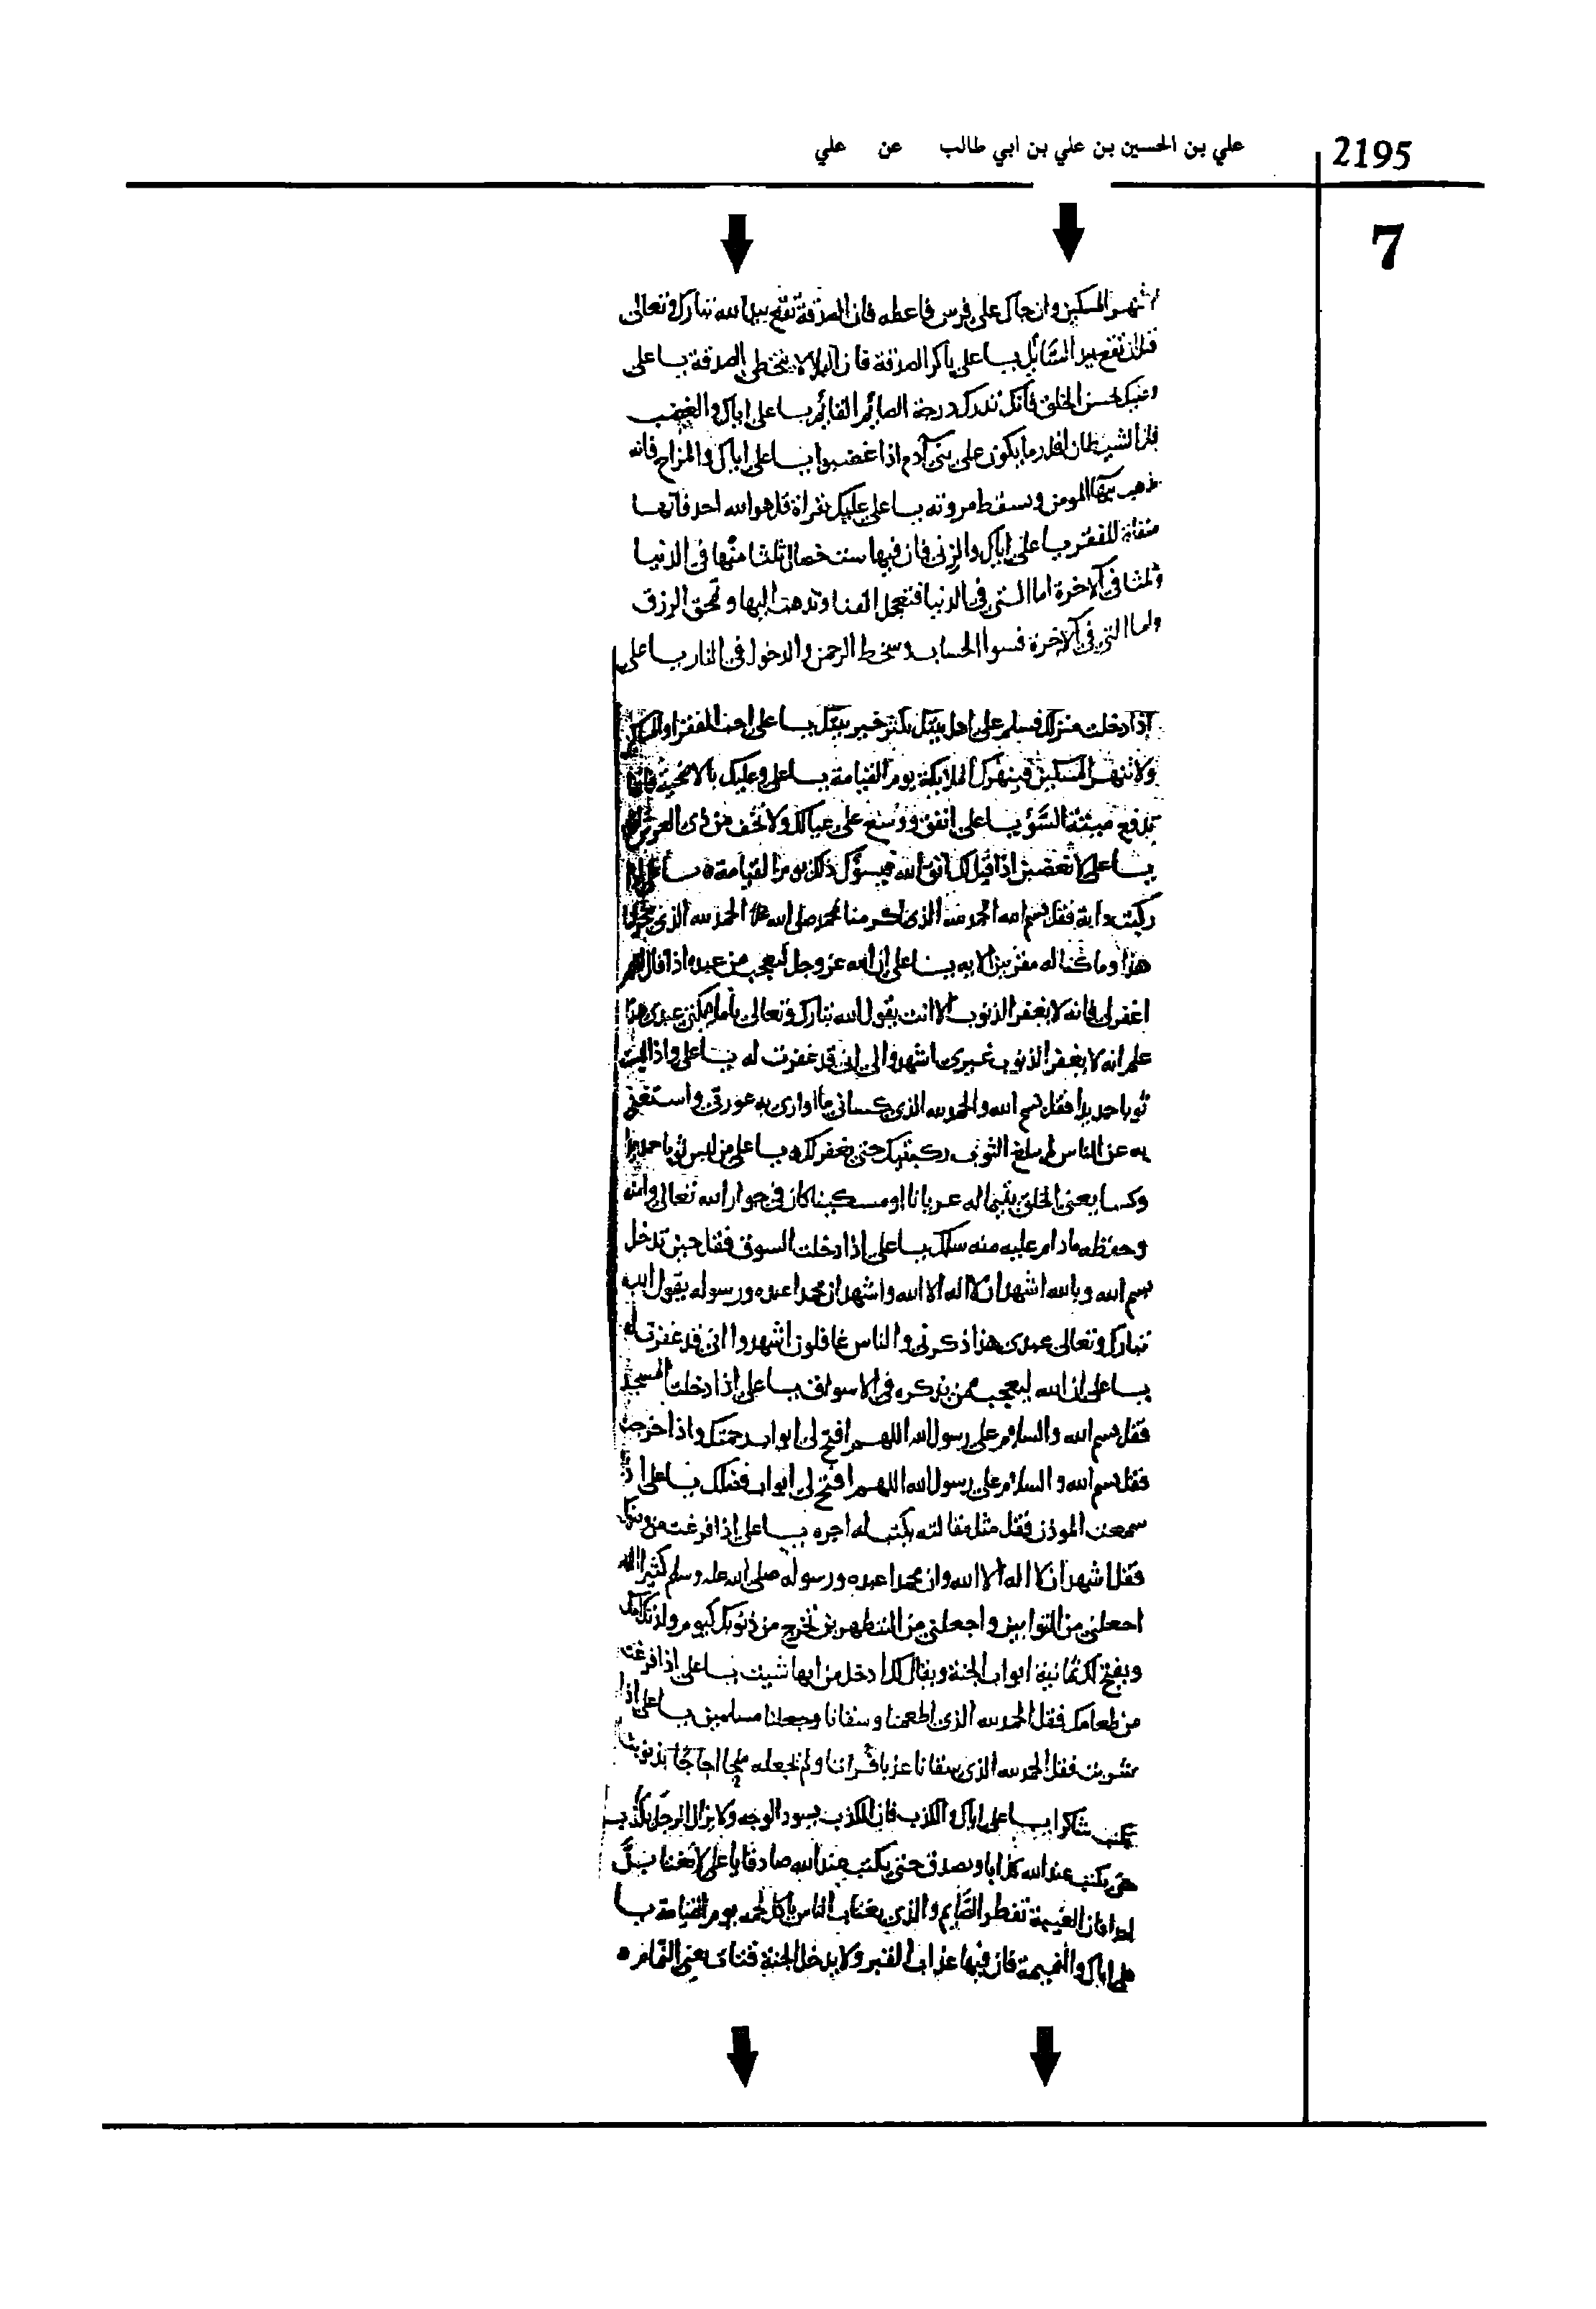 علي بن الحسين بن علي بن ابي طالب عن علي
2195
7
تنهر المسكين وان جاك على فرس فاعطه فان الصدقة تقع بيد الله تبارك وتعالى
قبل ان تقع بيد السائل يا علي باكر الصدقة فان البلا لا يتخطى الصدقة يا على
وعليك بحسن الخلق فانك تدرك درجة الصايم القايم يا على اياك والغضب
فان الشيطان اقدر ما يكون على بنى آدم اذا غضبوا يا على اياك والمزاح فانه
يذهب ببها المومن ويسقط مروته يا على عليك بقراة قل هو الله احد فانها
منفاة للفقر يا على اياك والزنى فان فيها ست خصال ثلثا منها فى الدنيا
وثلثا فى الآخرة اما التي فى الدنيا فتعجل الفنا وتذهب البها وتمحق الرزق
واما التي فى الآخرة فسوا الحساب وسخط الرحمن والدخول فى النار يا على
اذا دخلت منزلك فسلم على اهل بيتك يكثر خير بيتك يا على احب الفقرا
ولا تنهر المسكين فينهرك الملايكة يوم القيامة يا على وعليك بالا
تدفع ميتة السؤ يا على انفق ووسع على عيالك ولا تخف من ذى العرش
يا على لا تغضبن اذا قيل لك اتق الله فيسؤك ذلك يوم القيامة يا على اذا
ركبت دابة فقل بسم الله الحمد لله الذى كرمنا الحمد لله الذى سخر لنا
هذا وما كنا له مقرنين الايه يا على ان الله عز وجل ليعجب من عبده اذا قال اللهم
اغفر لى فانه لا يغفر الذنوب الا انت يقول الله تبارك وتعالى يا ملايكتى عبدى هذا
علم انه لا يغفر الذنوب غيرى اشهدوا انى قد غفرت له يا على واذا لبست
ثوبا جديدا فقل بسم الله والحمد لله الذى كسانى ما اوارى به عورتى واستغنى
به عن الناس لم يبلغ الثوب ركبتيك حتى يغفر لك يا على من لبس ثوبا جديدا
وكسا يعنى الخلق يتيما له عريانا او مسكينا كان فى جوار الله تعالى وامنه
وحفظه ما دام عليه منه سلك يا على اذا دخلت السوق فقل حين تدخل
بسم الله وبالله اشهد ان لا اله الا الله واشهد ان محمدا عبده ورسوله يقول الله
تبارك وتعالى عبدى هذا ذكرنى والناس غافلون اشهدوا انى قد غفرت له
يا على ان الله ليعجب ممن يذكره فى الاسواق يا على اذا دخلت المسجد
فقل بسم الله والسلام على رسول الله اللهم افتح لى ابواب رحمتك واذا خرجت
فقل بسم الله والسلام على رسول الله اللهم افتح لى ابواب فضلك يا على اذا
سمعت الموذن فقل مثل مقالته يكتب له اجره يا على اذا فرغت من وضوك
فقل اشهد ان لا اله الا الله وان محمدا عبده ورسوله صلى الله عليه وسلم كثيرا اللهم
اجعلنى من التوابين واجعلنى من المتطهرين تخرج من ذنوبك كيوم ولدتك امك
ويفتح لك ثمانية ابواب الجنة ويقال لك ادخل من ايها شيت يا على اذا فرغت
من طعامك فقل الحمد لله الذى اطعمنا وسقانا وجعلنا مسلمين يا على اذا
شربت فقل الحمد لله الذى سقانا عذبا فراتا ولم يجعله ملحا اجاجا بذنوبنا
تكتب شاكرا يا على اياك والكذب فان الكذب يسود الوجه ولا يزال الرجل يكذب
حتى يكتب عند الله كذابا ويصدق حتى يكتب عند الله صادقا يا على لا تغتابن
احدا فان الغيبة تفطر الصايم والذى يغتاب الناس ياكل لحمه يوم القيامة يا
على اياك والنميمة فان فيها عذاب القبر ولا يدخل الجنة قتات يعنى النمام